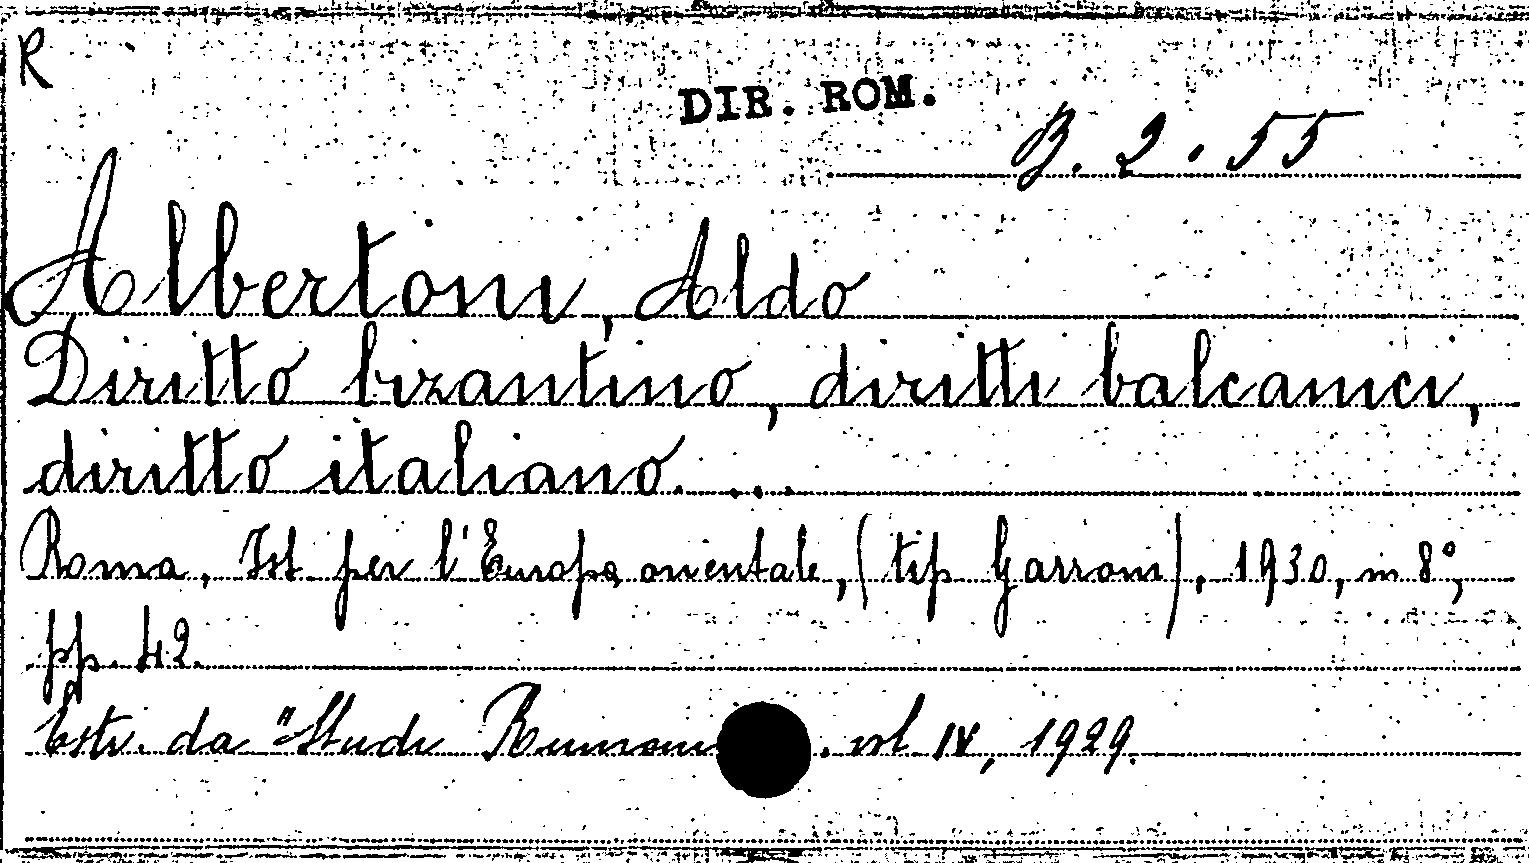 R
DIR. ROM.
B. 2. 55
Albertoni, Aldo
Diritto bizantino, diritti balcanici,
diritto italiano. ...
Roma, Ist per l'Europa orientale, (tip Garroni), 1930, in 8°,
pp. 42.
Estr. da "Studi Rumeni . vol IV, 1929.